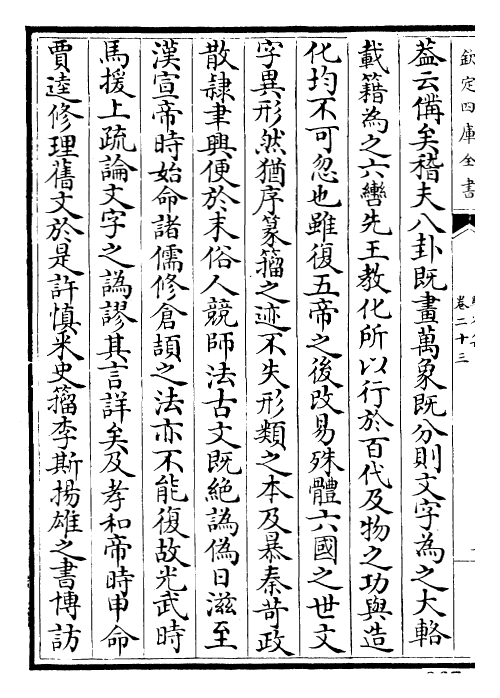 欽定四庫全書
卷二十三
蓋云備矣稽夫八卦既畫萬象既分則文字為之大輅
載籍為之六轡先王教化所以行於百代及物之功與造
化均不可忽也雖復五帝之後改易殊體六國之世文
字異形然猶序篆籀之迹不失形類之本及暴秦苛政
散隷聿興便於末俗人競師法古文既絶譌偽日滋至
漢宣帝時始命諸儒修倉頡之法亦不能復故光武時
馬援上疏論文字之譌謬其言詳矣及孝和帝時申命
賈逵修理舊文於是許慎采史籀李斯揚雄之書博訪